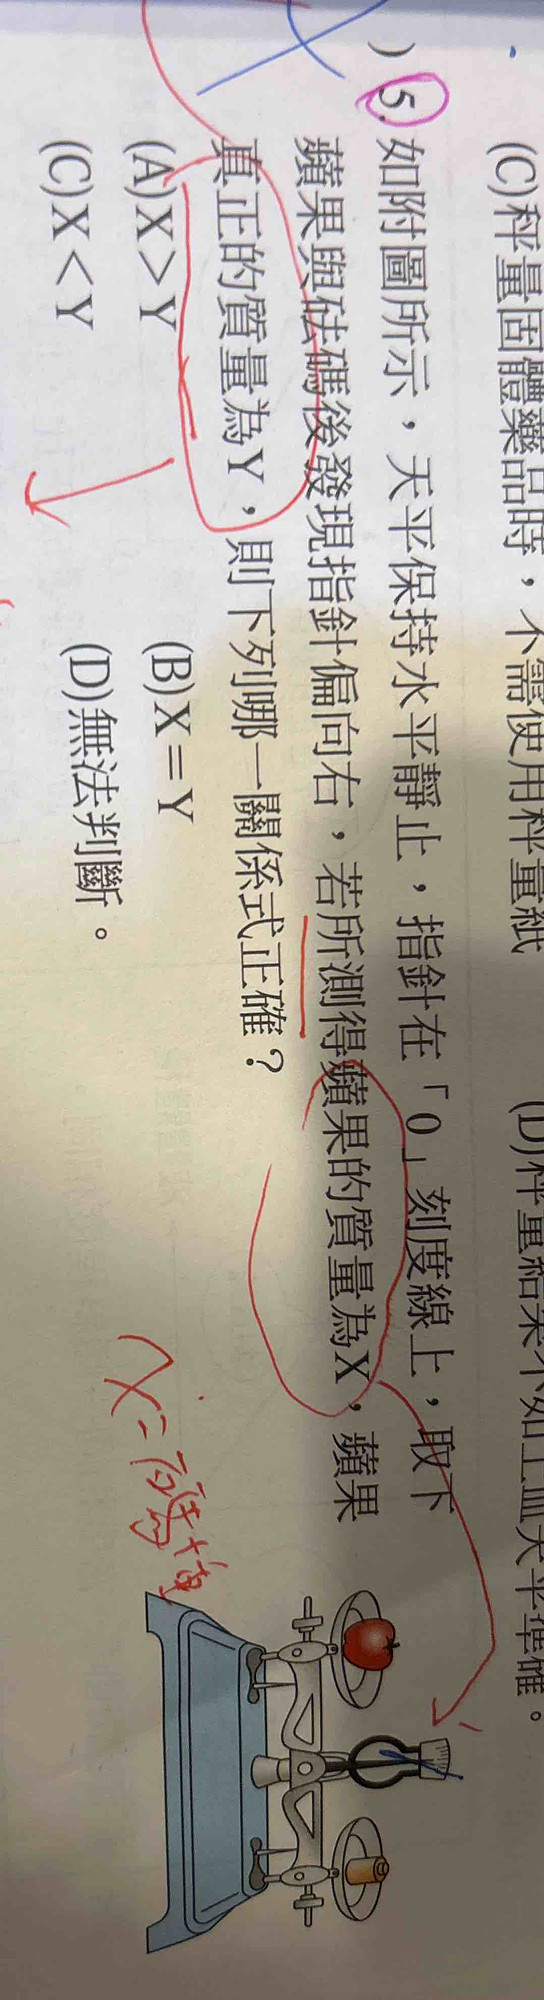 (C)秤量固體藥品時，不需使用秤量紙 (D)秤量結果不如上皿天平準確。
) 5. 如附圖所示，天平保持水平靜止，指針在「0」刻度線上，取下
蘋果與砝碼後發現指針偏向右，若所測得蘋果的質量為X，蘋果
真正的質量為Y，則下列哪一關係式正確？
(A)X＞Y (B)X＝Y
(C)X＜Y (D)無法判斷。
X=砝碼+